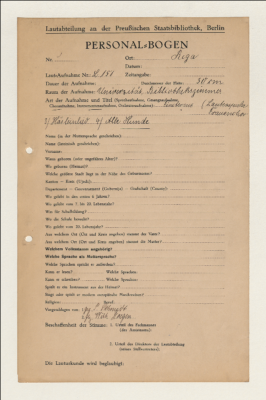 Lautabteilung an der Preußischen Staatsbibliothek, Berlin
PERSONAL-BOGEN
Nr. Ort: Riga
Datum:
LautAufnahme Nr.: Zeitangabe:
Dauer der Aufnahme: Durchmesser der Platte: 30 cm
Raum der Aufnahme: Universitäts Bibliothekszimmer
Art der Aufnahme und Titel
2) Alte Hunde
Name (in der Muttersprache geschrieben):
Name (lateinisch geschrieben):
Vorname:
Wann geboren (oder ungefähres Alter)?
Wo geboren (Heimat)?
Welche größere Stadt liegt in der Nähe des Geburtsortes?
Kanton — Kreis (Ujedz):
Departement — Gouvernement (Gubernija) — Grafschaft (County):
Wo gelebt in den ersten 6 Jahren?
Wo gelebt vom 7. bis 20. Lebensjahr?
Was für Schulbildung?
Wo die Schule besucht?
Wo gelebt vom 20. Lebensjahr?
Aus welchem Ort (Ort und Kreis angeben) stammt der Vater?
Aus welchem Ort (Ort und Kreis angeben) stammt die Mutter?
Welchem Volksstamm angehörig?
Welche Sprache als Muttersprache?
Welche Sprachen spricht er außerdem?
Kann er lesen? Welche Sprachen?
Kann er schreiben? Welche Sprachen?
Spielt er ein Instrument aus der Heimat?
Singt oder spielt er modern europäische Musikweisen?
Religion: Beruf:
Vorgeschlagen von: 1.
2.
Beschaffenheit der Stimme: 1. Urteil des Fachmannes
(des Assistenten):
2. Urteil des Direktors der Lautabteilung
(seines Stellvertreters):
Die Lauturkunde wird beglaubigt: